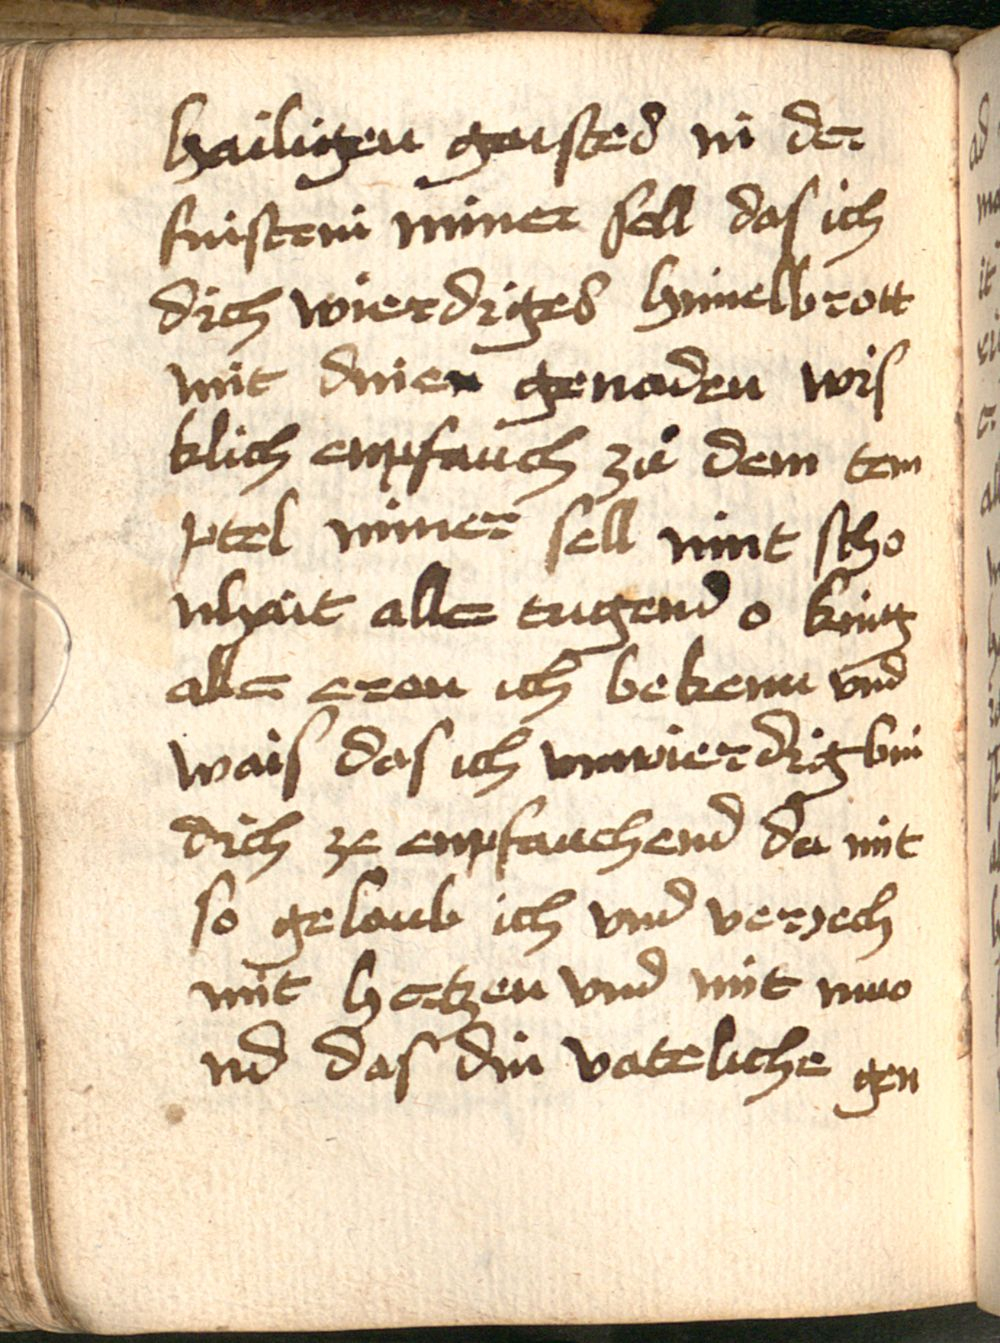 hailigen gaistes in der
finistrni miner sell das ich
dich wierdiges himelbrott
mit dinen genaden wir
klich enpfauch zu dem tem
ptel miner sell mit scho
nhait aller tugend o king
aller eren ich bekenn vnd
wais das ich vnwierdig bin
dich ze enpfauchend da mit
so gelaub ich vnd veriech
mit hertzen vnd mit muo
nd das din vateliche gen